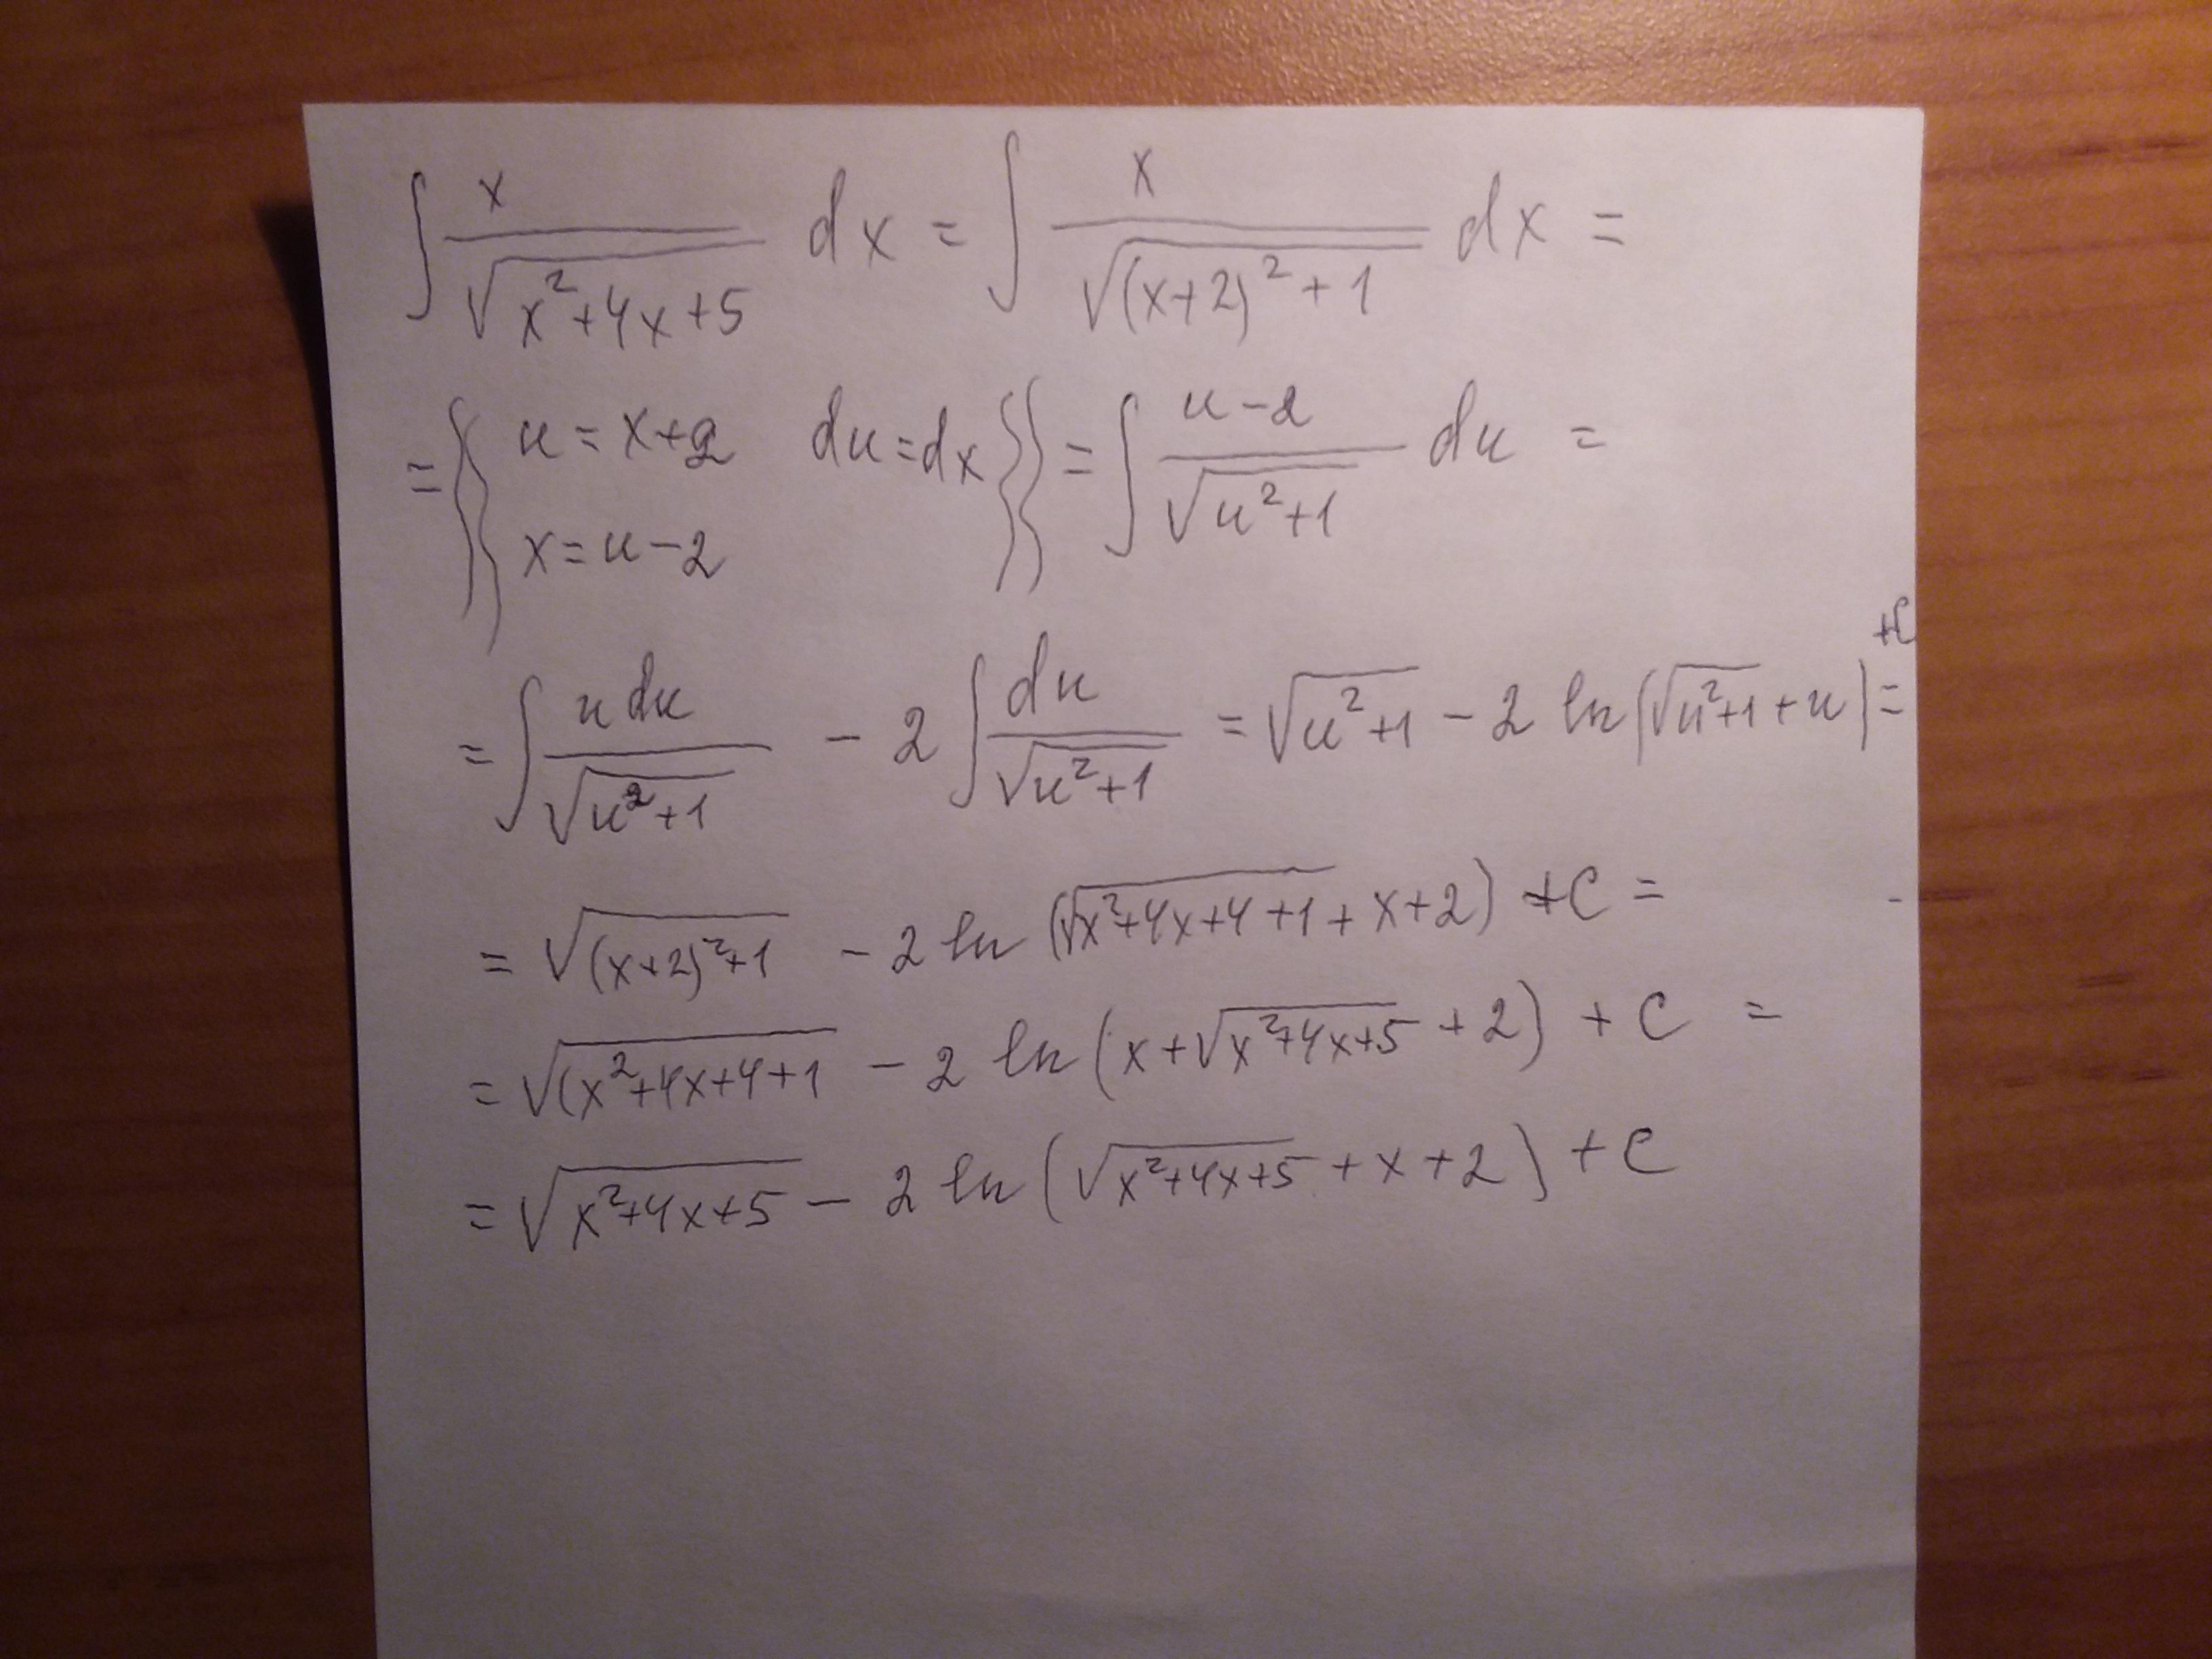 ∫ x / √(x²+4x+5) dx = ∫ x / √((x+2)²+1) dx =
= {{ u = x+2 du = dx }} = ∫ (u-2) / √(u²+1) du =
x = u-2
= ∫ u du / √(u²+1) - 2 ∫ du / √(u²+1) = √(u²+1) - 2 ln(√(u²+1) + u) + C =
= √((x+2)²+1) - 2 ln (√(x²+4x+4+1) + x+2) + C =
= √(x²+4x+4+1) - 2 ln (x+√(x²+4x+5) + 2) + C =
= √(x²+4x+5) - 2 ln (√(x²+4x+5) + x + 2) + C